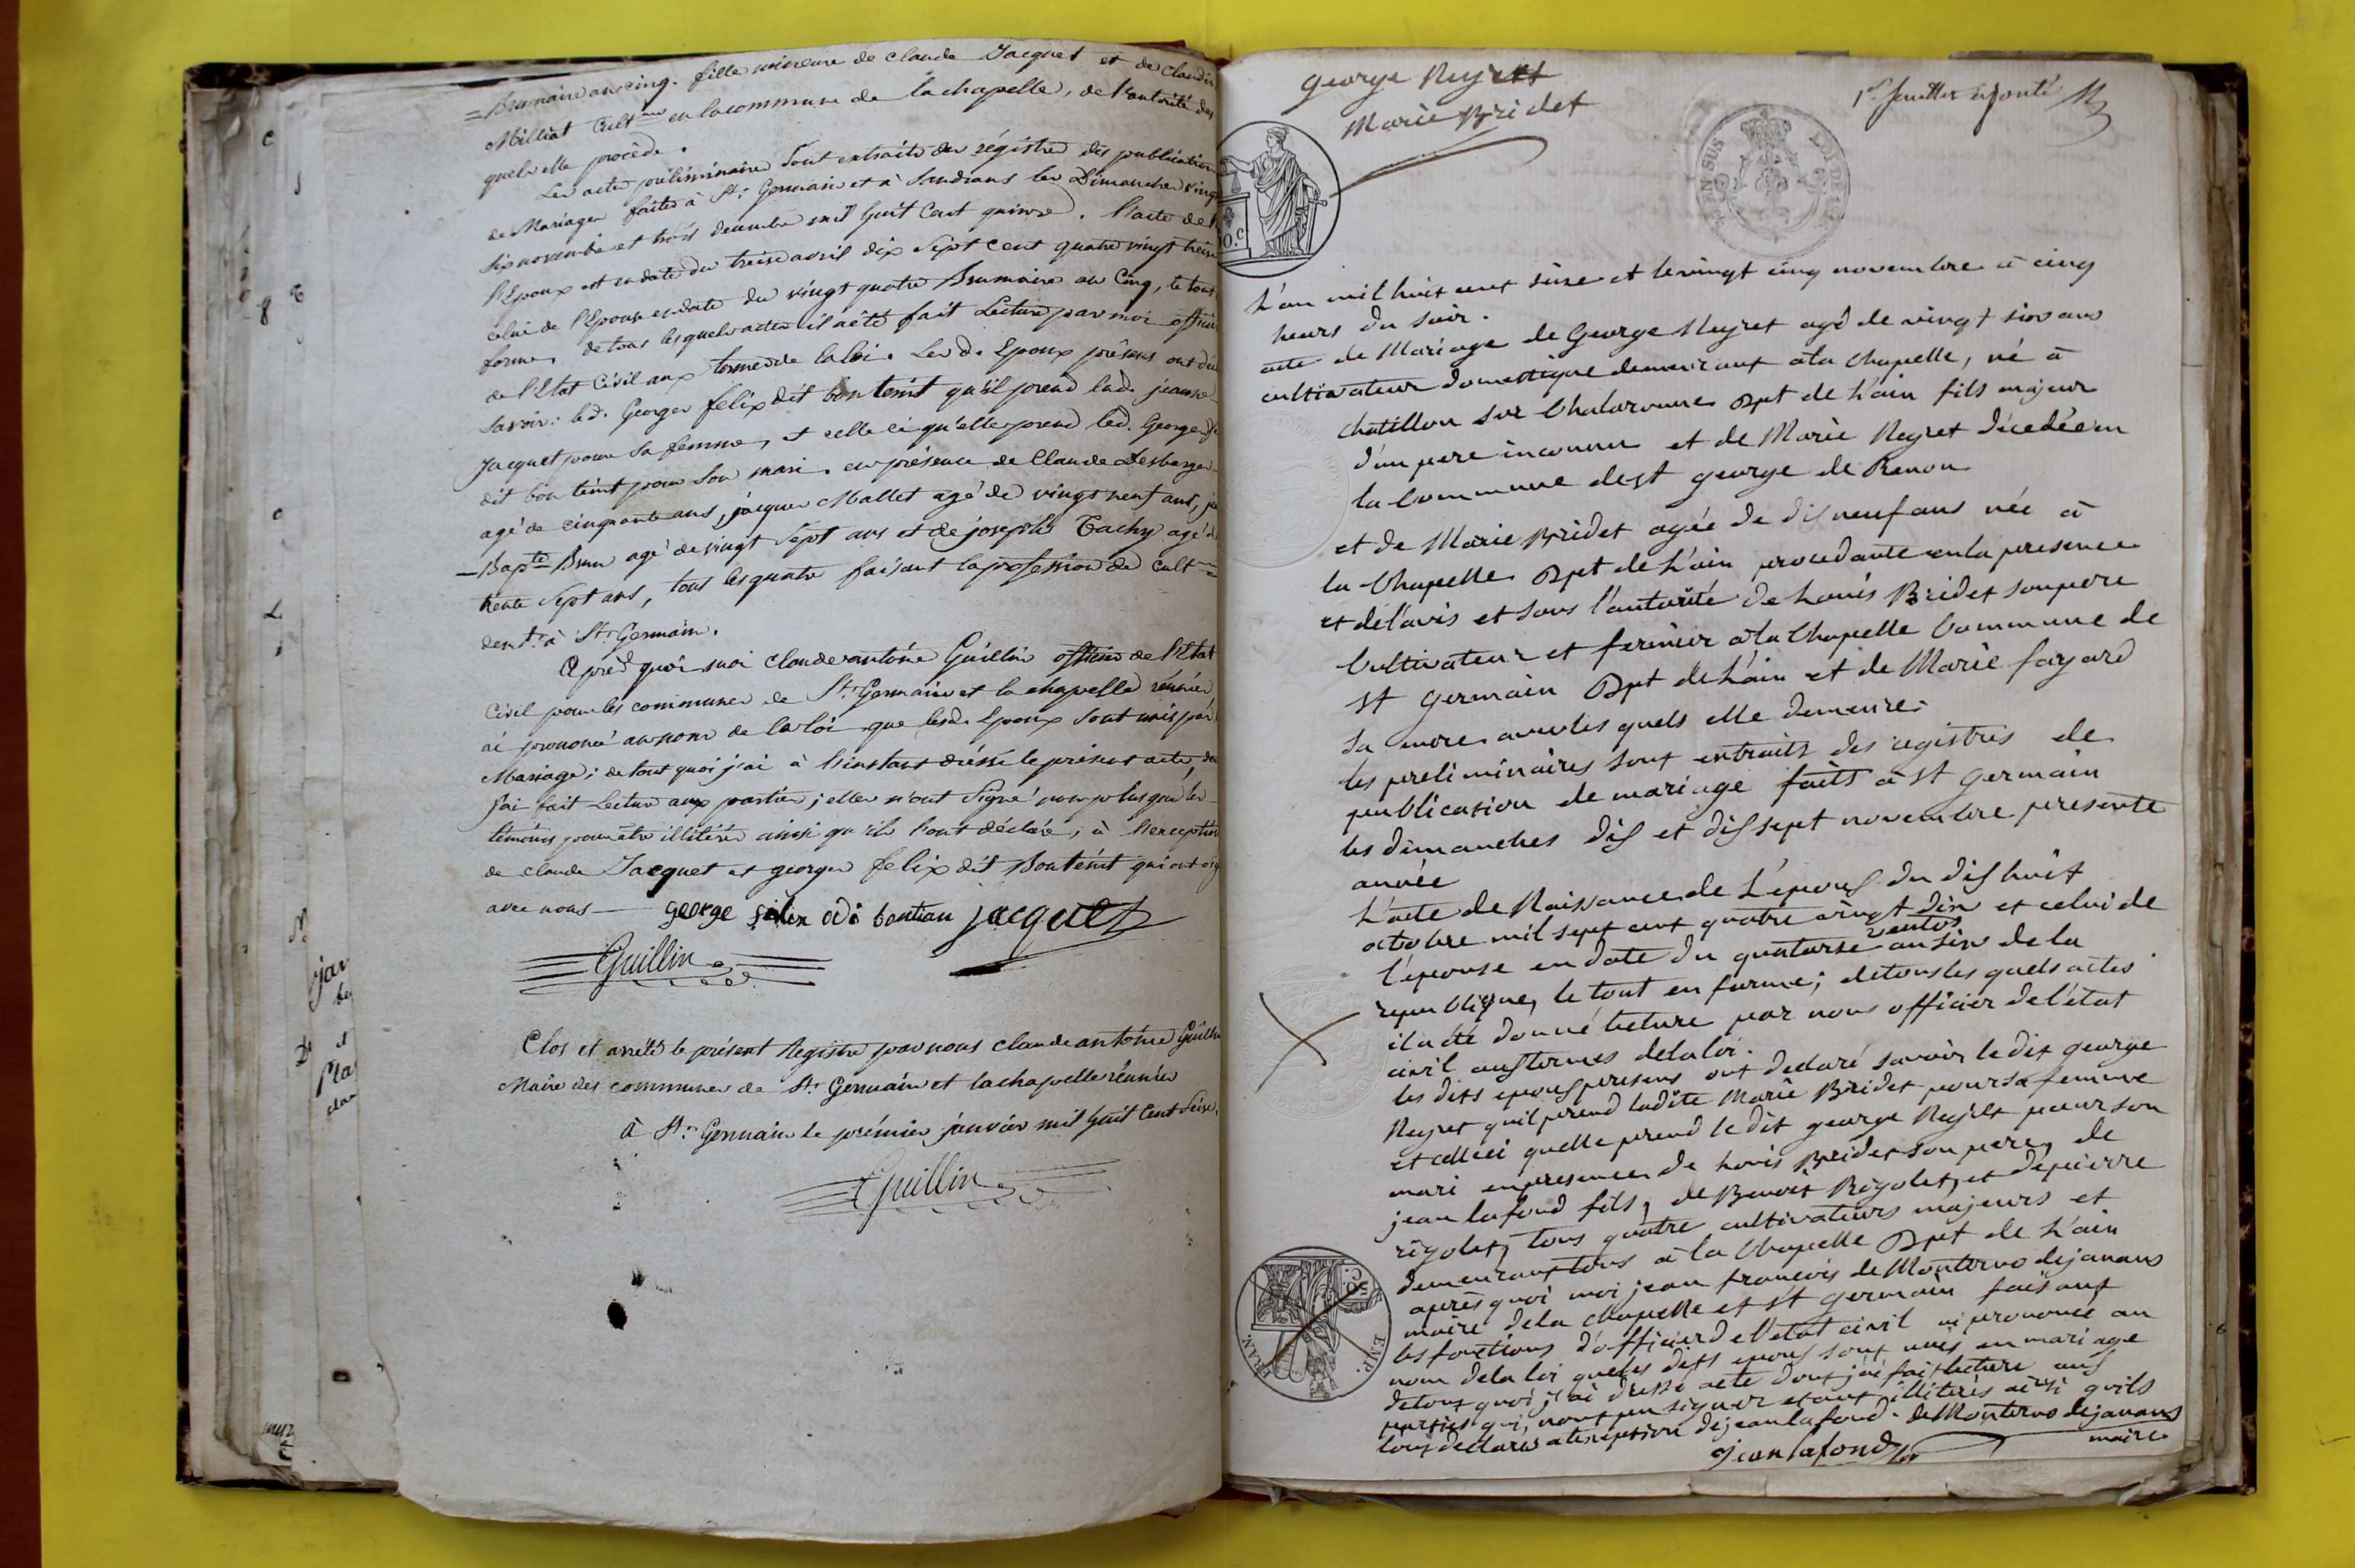 = Brumaire an cinq. fille mineure de claude Jacquet et de Claudine
Milliat Cultrs en la commune de la chapelle, de l'autorité des
quels elle procède.
Les actes préliminaires sont extraits des régistres des publications
de Mariages faites à St. Germain et à Sandrans les Dimanches vingt
six novembre et trois decembre mil huit Cent quinze. L'acte de
l'Epoux est en date du treize avril dix sept cent quatre vingt treize
celui de l'Epouse en date du vingt quatre Brumaire an Cinq, le tout
forme, de tous lesquels actes il a été fait Lecture par moi officier
de l'Etat Civil aux termes de la loi. Les d. Epoux présens ont
savoir: led. George felix dit bonteint qu'il prend lad. jeanne
Jacquet pour sa femme, et celle ci qu'elle prend led. George
dit bon teint pour son mari. en présence de Claude Desbarges
agé de cinquante ans, jacques Mallet agé de vingt neuf ans,
= Bapte Brun agé de vingt sept ans et de joseph Tachy agé de
trente sept ans, tous les quatre faisant la profession de cult
dent. à St. Germain.
Après quoi moi claude antoine Guillin officier de l'Etat
Civil pour les communes de St. Germain et la chapelle réunies
ai prononcé au nom de la loi que lesd. Epoux sont unis par
Mariage; de tout quoi j'ai à l'instant dréssé le présent acte,
j'ai fait Lecture aux parties; elles n'ont signé non plus que les
témoins pour être illitérés ainsi qu'ils l'ont déclaré, à l'exception
de claude Jacquet et george felix dit Bonteint qui ont
avec nous — george felix di bontian jacquet
Guillin
Clos et arrêté le présent Registre par nous claude antoine Guillin
Maire des communes de St. Germain et la chapelle réunies
à St. Germain le prémier janvier mil huit Cent Seize.
Guillin
george Neyret
Marie Bridet
1er feuillet ajouté
L'an mil huit cent seize et le vingt cinq novembre à cinq
heurs du soir.
acte de Mariage de George Neyret agé de vingt six ans
cultivateur domestique demeurant à la Chapelle, né à
chatillon sur Chalaronne Dpt de L'ain fils majeur
d'un pere inconnu et de Marie Neyret décedée en
la Commune de st george de Renon
et de Marie Bridet agée de dix neuf ans née à
la Chapelle Dpt de L'ain procedante en la presence
et de l'avis et sous l'autorité de Louis Bridet son pere
Cultivateur et fermier à la Chapelle Commune de
st germain Dpt de L'ain et de Marie fayard
sa mere avec les quels elle demeure.
les preliminaires sont extraits des registres de
publication de mariage faits à st germain
les dimanches dix et dix sept novembre presente
année
L'acte de Naissance de L'epoux du dix huit
octobre mil sept cent quatre vingt dix et celui de
l'epouse en date du quatorse ventos an six de la
republique, le tout en forme; de tous les quels actes
il a été donné lecture par nous officier de l'état
civil aux termes de la loi.
les dits epoux presens ont declaré savoir le dit george
Neyret quil prend ladite Marie Bridet pour sa femme
et celle ci quelle prend le dit george Neyret pour son
mari en presence de Louis Bridet son pere, de
jean lafond fils, de Benoit Rigolet, et de pierre
rigolet, tous quatre cultivateurs majeurs et
demeurant tous à la Chapelle Dpt de L'ain
après quoi moi jean françois de Montervo dejanans
maire de la chapelle et st germain faisant
les fonctions d'officier de l'etat civil ai prononcé au
nom de la loi que les dits epoux sont unis en mariage
de tout quoi j'ai dressé acte dont j'ai fait lecture aux
parties qui, n'ont pu signer etant illiterés ainsi quils
lont declarés a l'exeption de jean lafond. de Montervo dejanans
jean lafond
maire